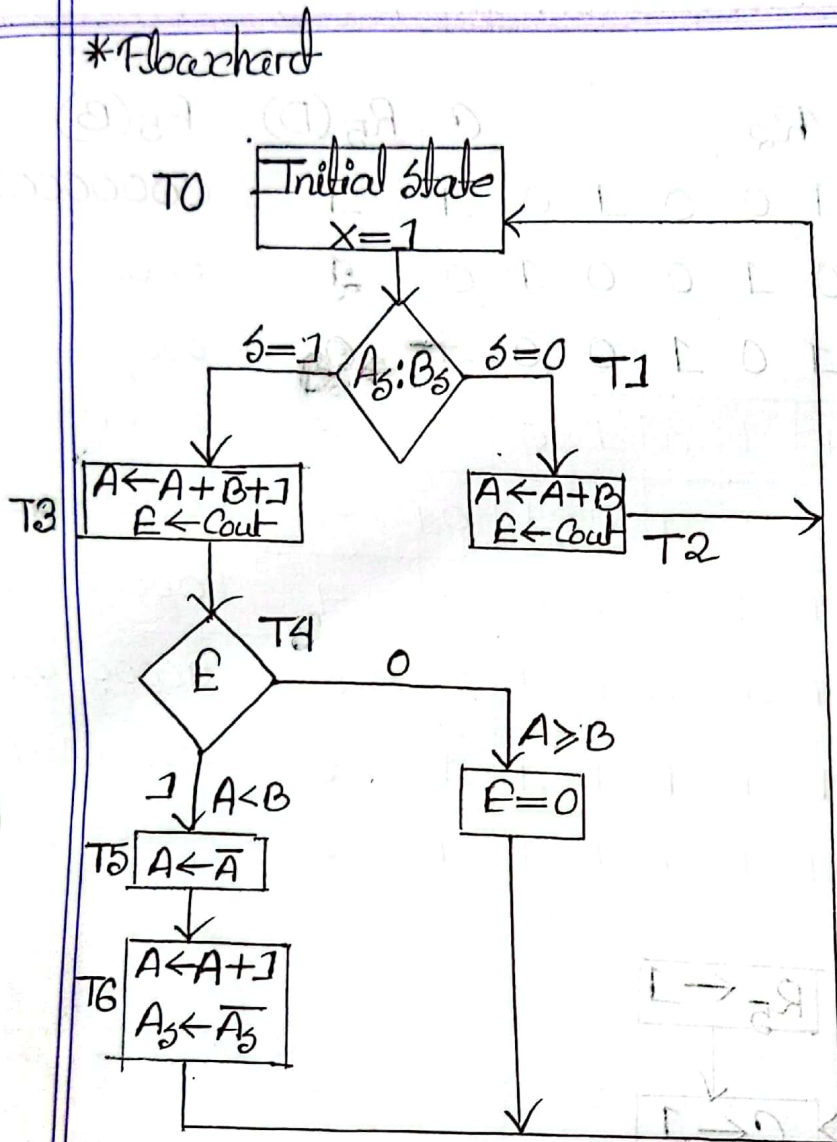 *Flowchard
T0
Initial state
X=1
S=1
As:B̅s
S=0
T1
T3
A←A+B̅+1
E←Cout
A←A+B
E←Cout
T2
T4
E
0
1
A<B
A≥B
E=0
T5
A←A̅
T6
A←A+1
As←A̅s̅